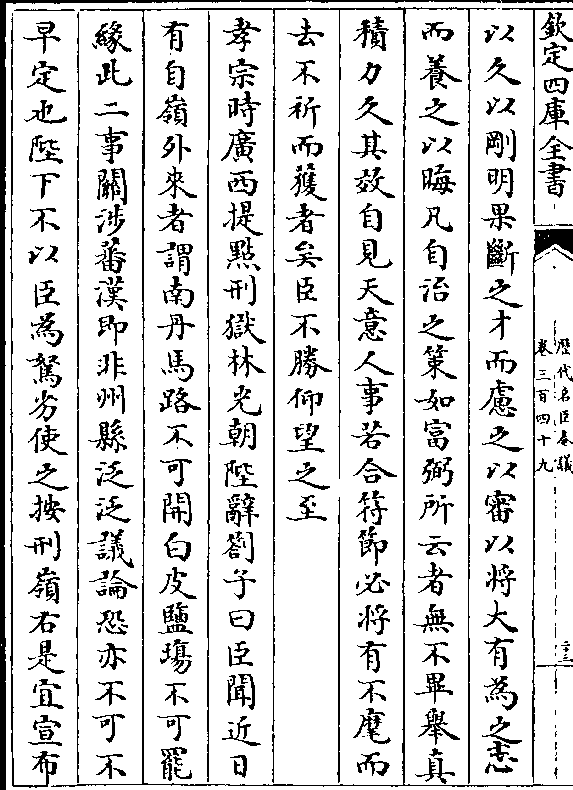 欽定四庫全書
歴代名臣奏議
卷三百四十九
二十三
以久以剛明果斷之才而慮之以審以將大有為之志
而養之以晦凡自治之策如富弼所云者無不畢舉真
積力久其效自見天意人事若合符節必將有不麾而
去不祈而獲者矣臣不勝仰望之至
孝宗時廣西提點刑獄林光朝陛辭劄子曰臣聞近日
有自嶺外來者謂南丹馬路不可開白皮鹽場不可罷
緣此二事關涉蕃漢即非州縣泛泛議論恐亦不可不
早定也陛下不以臣為駑劣使之按刑嶺右是宜宣布